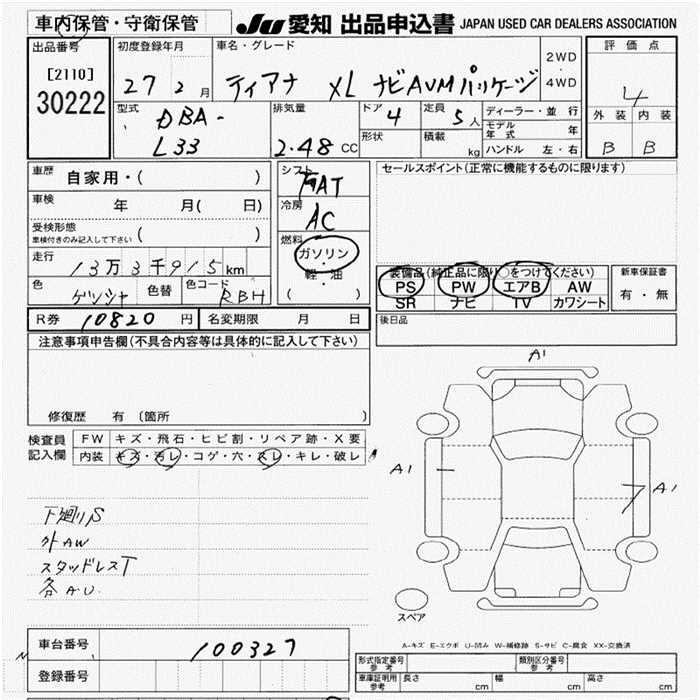 車内保管・守衛保管
JU 愛知 出品申込書 JAPAN USED CAR DEALERS ASSOCIATION
出品番号
[2110]
30222
初度登録年月
27 2 月
車名・グレード
ティアナ XL ナビAVMパッケージ
2WD
・
4WD
評価点
4
外装 内装
B B
型式
DBA-
L33
排気量
2.48 CC
ドア
4
形状
定員
5 人
積載
kg
ディーラー・並行
モデル年式 年
ハンドル 左・右
車歴
自家用・( )
車検
年 月( 日)
受検形態
車検付きのみ記入して下さい ( )
走行
13万3千915km
色
色替
色コード
RBH
シフト
FAT
冷房
AC
燃料
ガソリン・
軽・油
( )
セールスポイント(正常に機能するものに限ります)
装備品(純正品に限り○をつけてください)
PS PW エアB AW
SR ナビ TV カワシート
新車保証書
有・無
R券 10820 円
名変期限 月 日
後日品
注意事項申告欄(不具合内容等は具体的に記入して下さい)
修復歴 有 〔箇所 〕
検査員
記入欄
FW キズ・飛石・ヒビ割・リペア跡・X要
内装 キズ・汚レ・コゲ・穴・スレ・キレ・破レ
A1
A1
A1
下廻りS
外AW
スタッドレスT
各A.U.
スペア
A-キズ E-エクボ U-凹み W-補修跡 S-サビ C-腐食 XX-交換済
車台番号
100327
登録番号
形式指定番号
参考
類別区分番号
参考
車庫証明用
参考
長さ cm
幅 cm
高さ cm